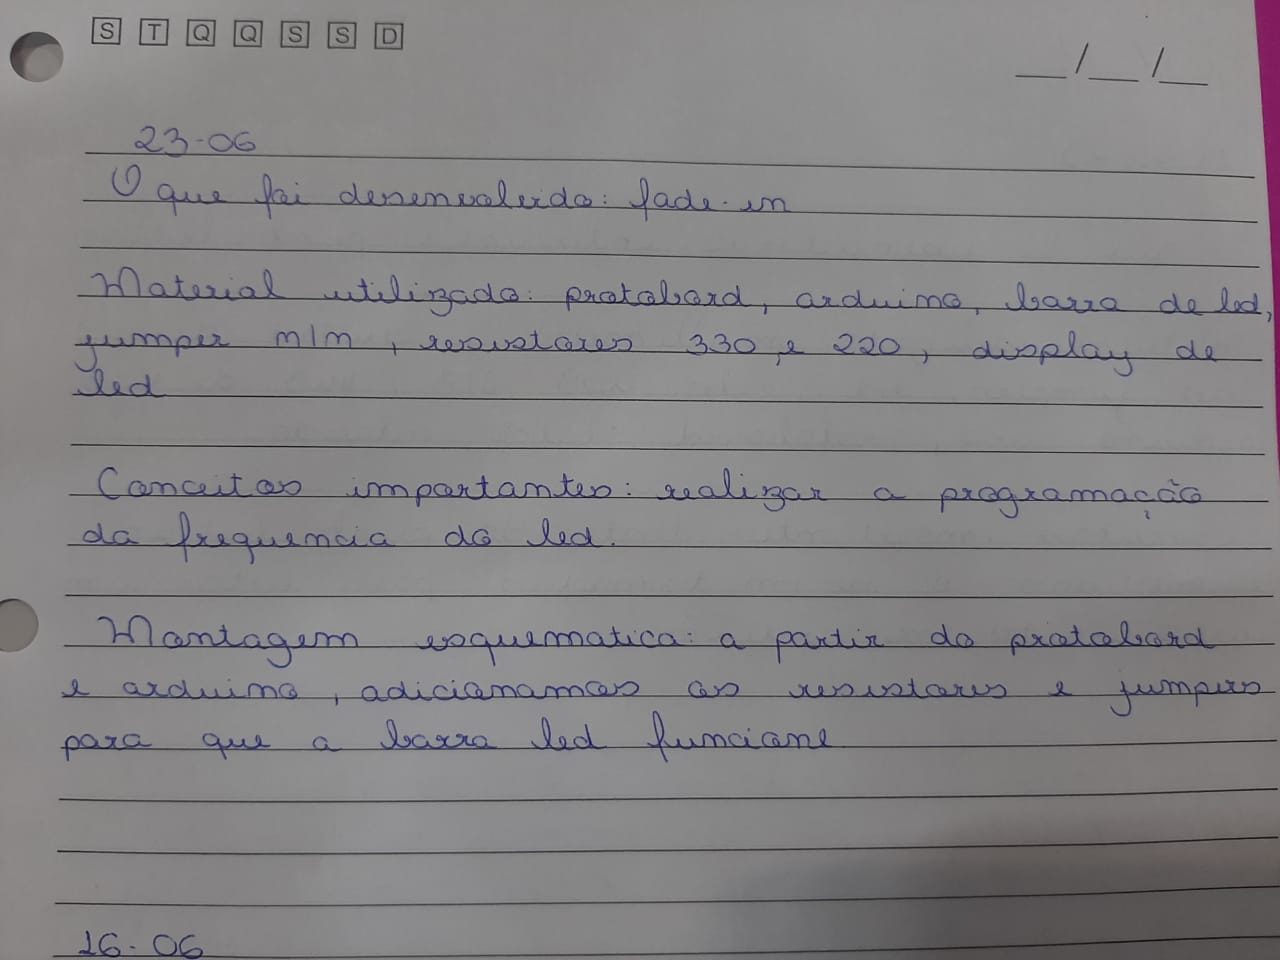 S T Q Q S S D
__/__/__
23-06
O que foi desenvolvido: fade-in
Material utilizado: protobord, arduino, barra de led,
jumper m/m, resistores 330 e 220, display de
led
Conceitos importantes: realizar a programação
da frequencia do led.
Montagem esquematica: a partir do protobord
e arduino, adicionamos os resistores e jumpers
para que a barra led funcione
16-06